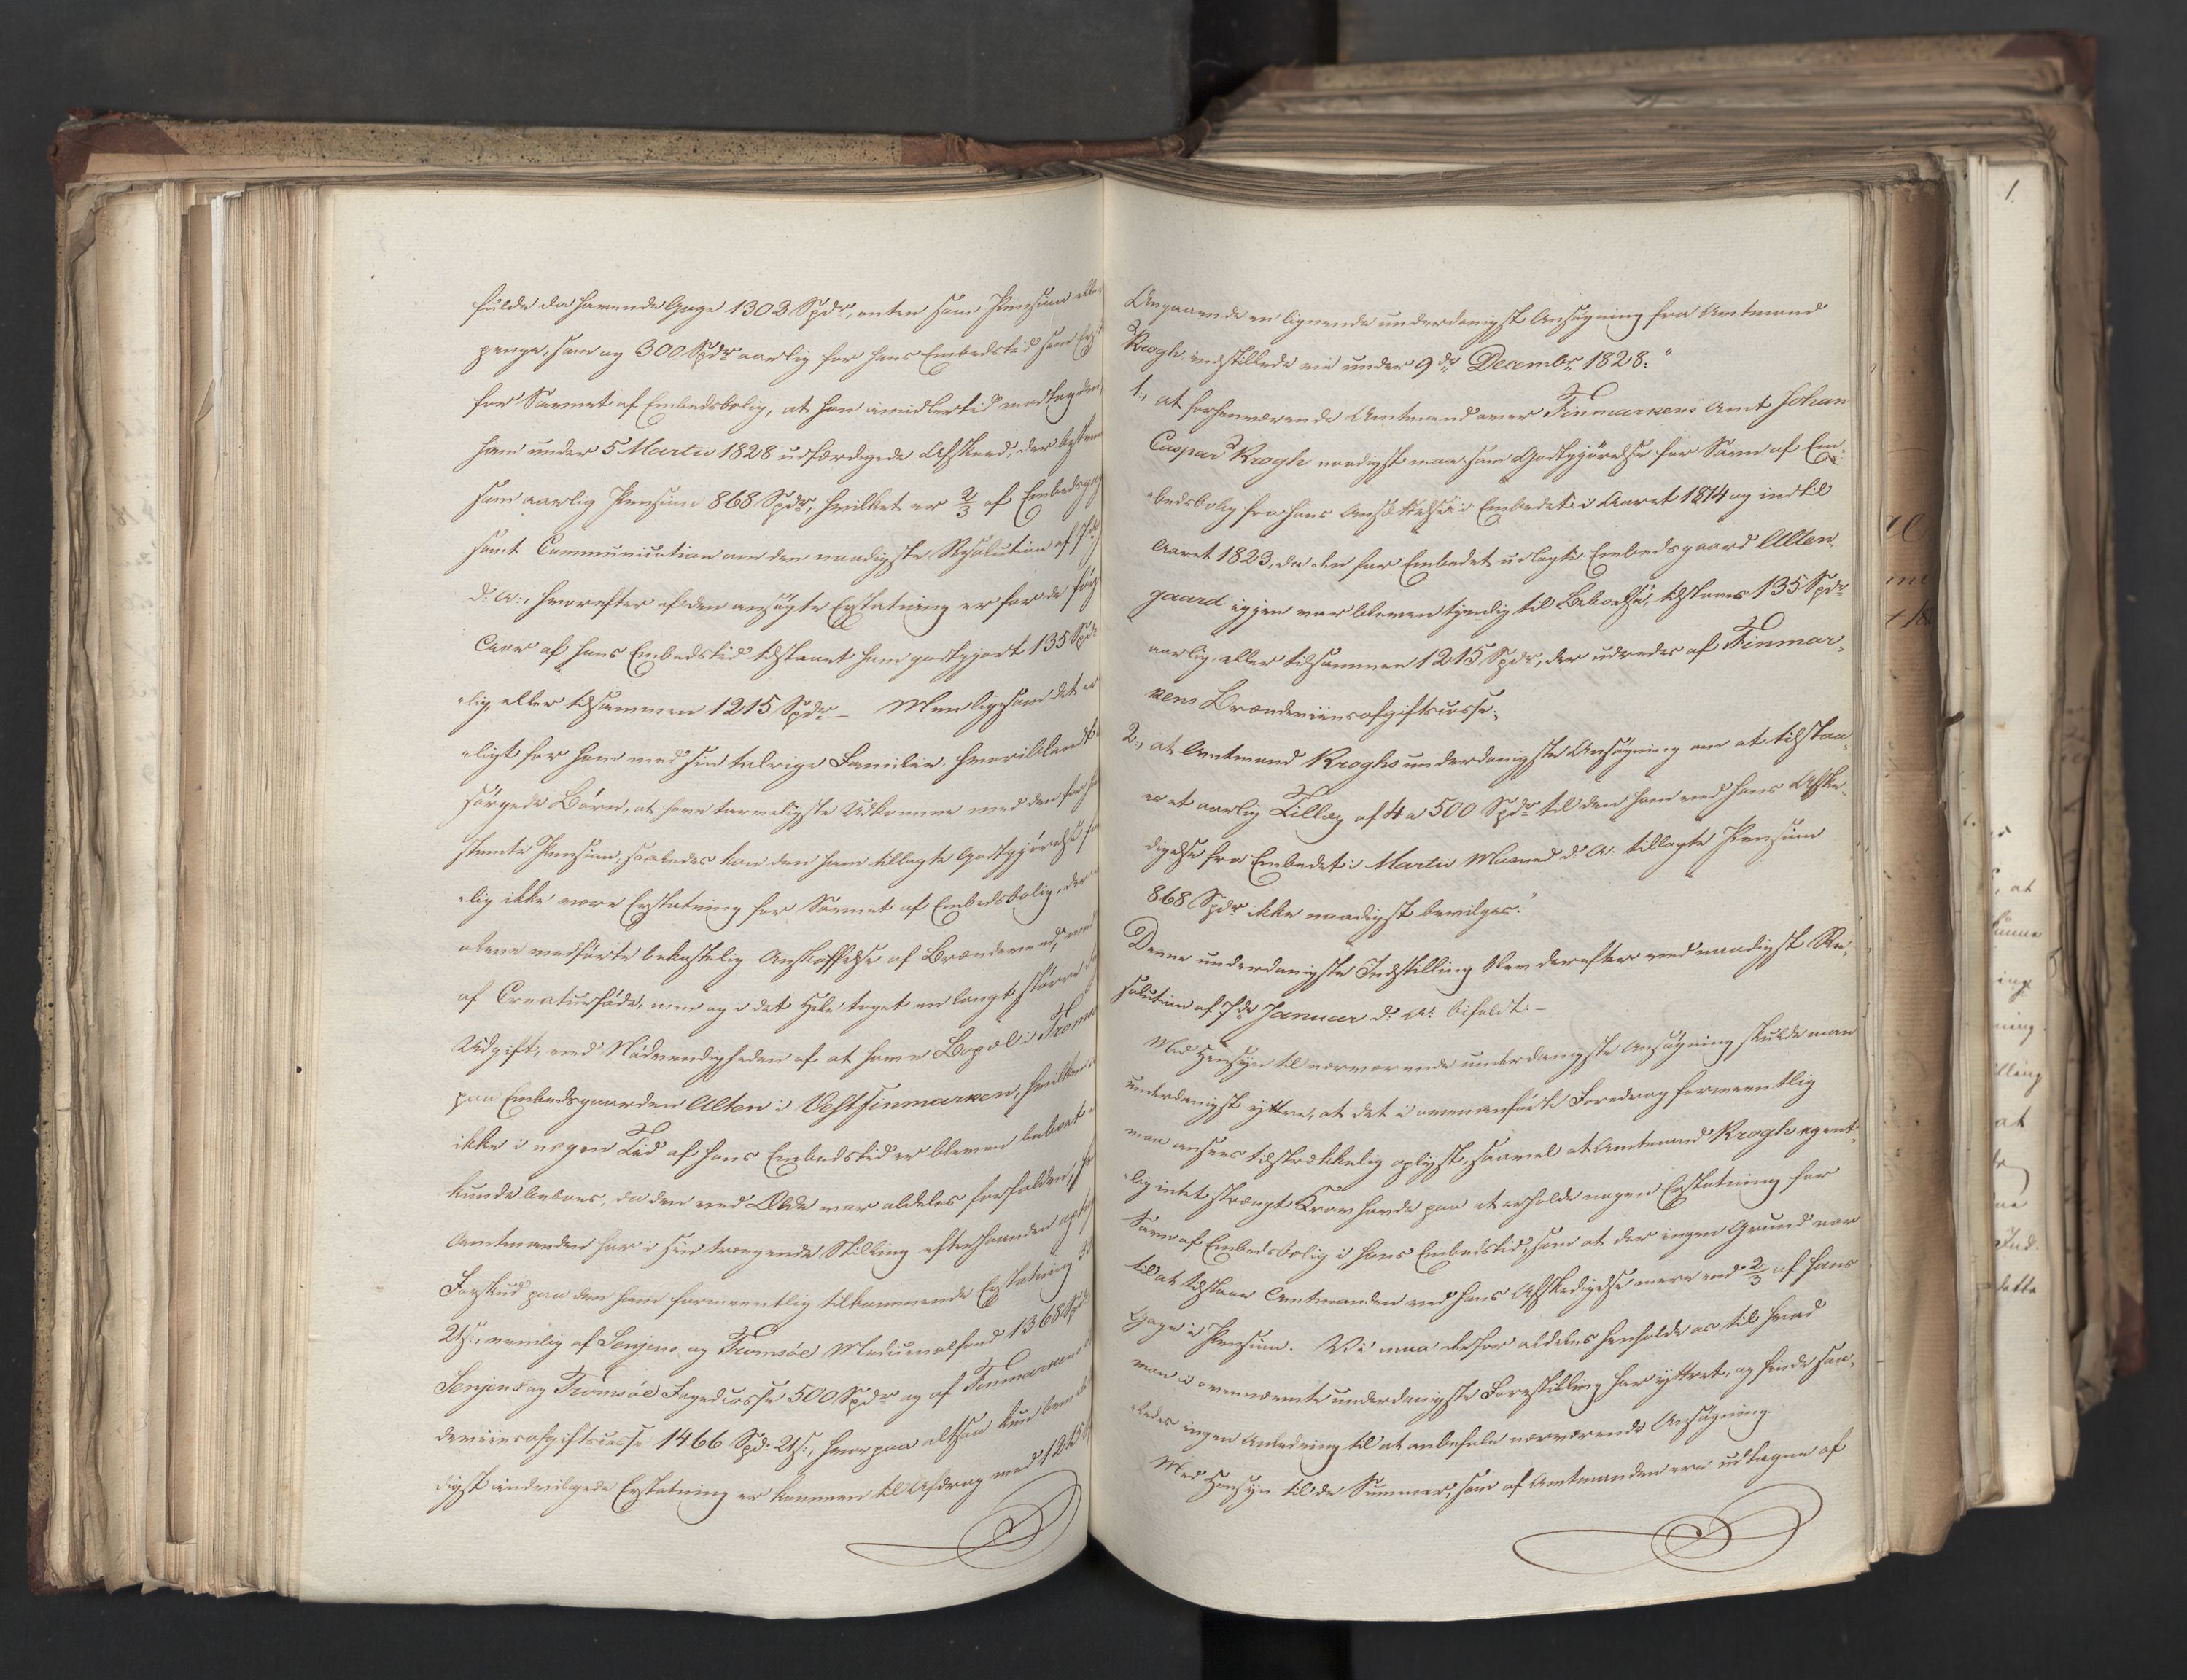 fulde da havende Gage 1303 Spdr, enten som Pension eller
penge, som og 300 Spdr aarlig for hans Embedstid som Erst
for Savnet af Embedsbolig, at han imidlertid modtog den
ham under 5 Martii 1828 udfærdigede Afskeed, der bestem
som aarlig Pension 868 Spdr, hvilket er 2/3 af Embedsgag
samt Communication om den naadigste Resolution af 7de
d: A:, hvorefter af den ansøgte Erstatning er for de før
Aar af hans Embedstid tilstaaet ham godtgjort 135 Spdr
"lig eller tilsammen 1215 Spdr. – Men ligesom det er
"ligt for ham med sin talrige Familie, hvoriblandt
sørgede Børn, at have tarveligste Udkomme med den for ham
stemte Pension, saaledes kan den ham tillagte Godtgjørelse
"lig ikke være Erstatning for Savnet af Embedsbolig, der
alene medførte bekostelig Anskaffelse af Brændeveed, med
af Creaturføde, men og i det Hele taget en langt større
Udgift, ved Nødvendigheden af at have Bopæl i Tromsø
paa Embedsgaarden Alten i Vestfinmarken, hvilken
ikke i nogen Tid af hans Embedstid er bleven beboet
kunde beboes, da den ved Ælde var aldeles forfalden,
Amtmanden har i sin trængende Stilling efterhaanden optaget
Forskud paa den ham formeentlig tilkommende Erstatning
24s:, nemlig af Senjens og Tromsøe Medicinalfond 1368 Spdr
Senjens og Tromsøe Fogedcasse 500 Spdr og af Finmarkens
deviinsafgiftscasse 1466 Spd. 24s:, hvorpaa altsaa kun den
digst indvilgede Erstatning er kommen til Afdrag med 1215
Angaaende en lignende underdanigst Ansøgning fra Amtmand
Krogh, indstillede vi under 9de Decembr 1828:"
1., at forhenværende Amtmand over Finmarkens Amt Johan
Caspar Krogh naadigst maa som Godtgjørelse for Savn af Em-
"bedsbolig fra hans Ansættelse i Embedet i Aaret 1814 og indtil
Aaret 1823, da den for Embedet udlagte Embedsgaard Alten-
gaard igjen var bleven tjenlig til Beboelse, tilstaaes 135 Spdr
aarlig, eller tilsammen 1215 Spdr, der udredes af Finmar-
kens Brændeviinsafgiftscasse;
2., at Amtmand Kroghs underdanigste Ansøgning om at tilstaa-
es et aarlig Tillæg af 4 a 500 Spdr til den ham ved hans Afske-
digelse fra Embedet i Martii Maaned d: A: tillagte Pension
868 Spdr ikke naadigst bevilges."
Denne underdanigste Indstilling blev derefter ved naadigst Re-
solution af 7de Januar d: A: bifaldt. –
Med Hensyn til nærværende underdanigste Ansøgning skulde man
underdanigst yttre, at det i ovenanførte Foredrag formeentlig
maa ansees tilstrækkelig oplyst, saavel at Amtmand Krogh egent-
"lig intet strængt Krav havde paa at erholde nogen Erstatning for
Savn af Embedsbolig i hans Embedstid, som at der ingen Grund var
til at tilstaae Amtmanden ved hans Afskedigelse mere end 2/3 af hans
Gage i Pension. Vi maa derfor aldeles henholde os til hvad
man i ovennævnte underdanigste Forestilling har yttret, og finde saa-
"ledes ingen Anledning til at anbefale nærværende Ansøgning.
Med Hensyn til de Summer, som af Amtmanden ere udtagne af
1.